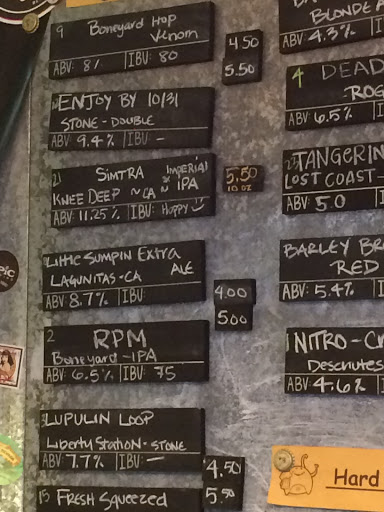 9 Boneyard Hop
Venom
ABV: 8% IBU: 80
4.50
5.50
ENJOY BY 10/31
STONE - DOUBLE
ABV: 9.4% IBU: -
21 SIMTRA ~ IMPERIAL
KNEE DEEP ~ CA ~ IPA
ABV: 11.25% IBU: Hoppy
5.50
10 OZ
Little Sumpin Extra
LAGUNITAS - CA ALE
ABV: 8.7% IBU:
4.00
5.00
2 RPM
Boneyard - IPA
ABV: 6.5% IBU: 75
LUPULIN LOOP
Liberty Station - STONE
ABV: 7.7% IBU: -
4.50
5.50
15 FRESH SQUEEZED
BLONDE
ABV: 4.3%
4 DEAD
ROG
ABV: 6.5%
TANGERIN
LOST COAST -
ABV: 5.0
BARLEY BR
RED
ABV: 5.4%
NITRO - C
Deschutes
ABV: 4.6%
Hard